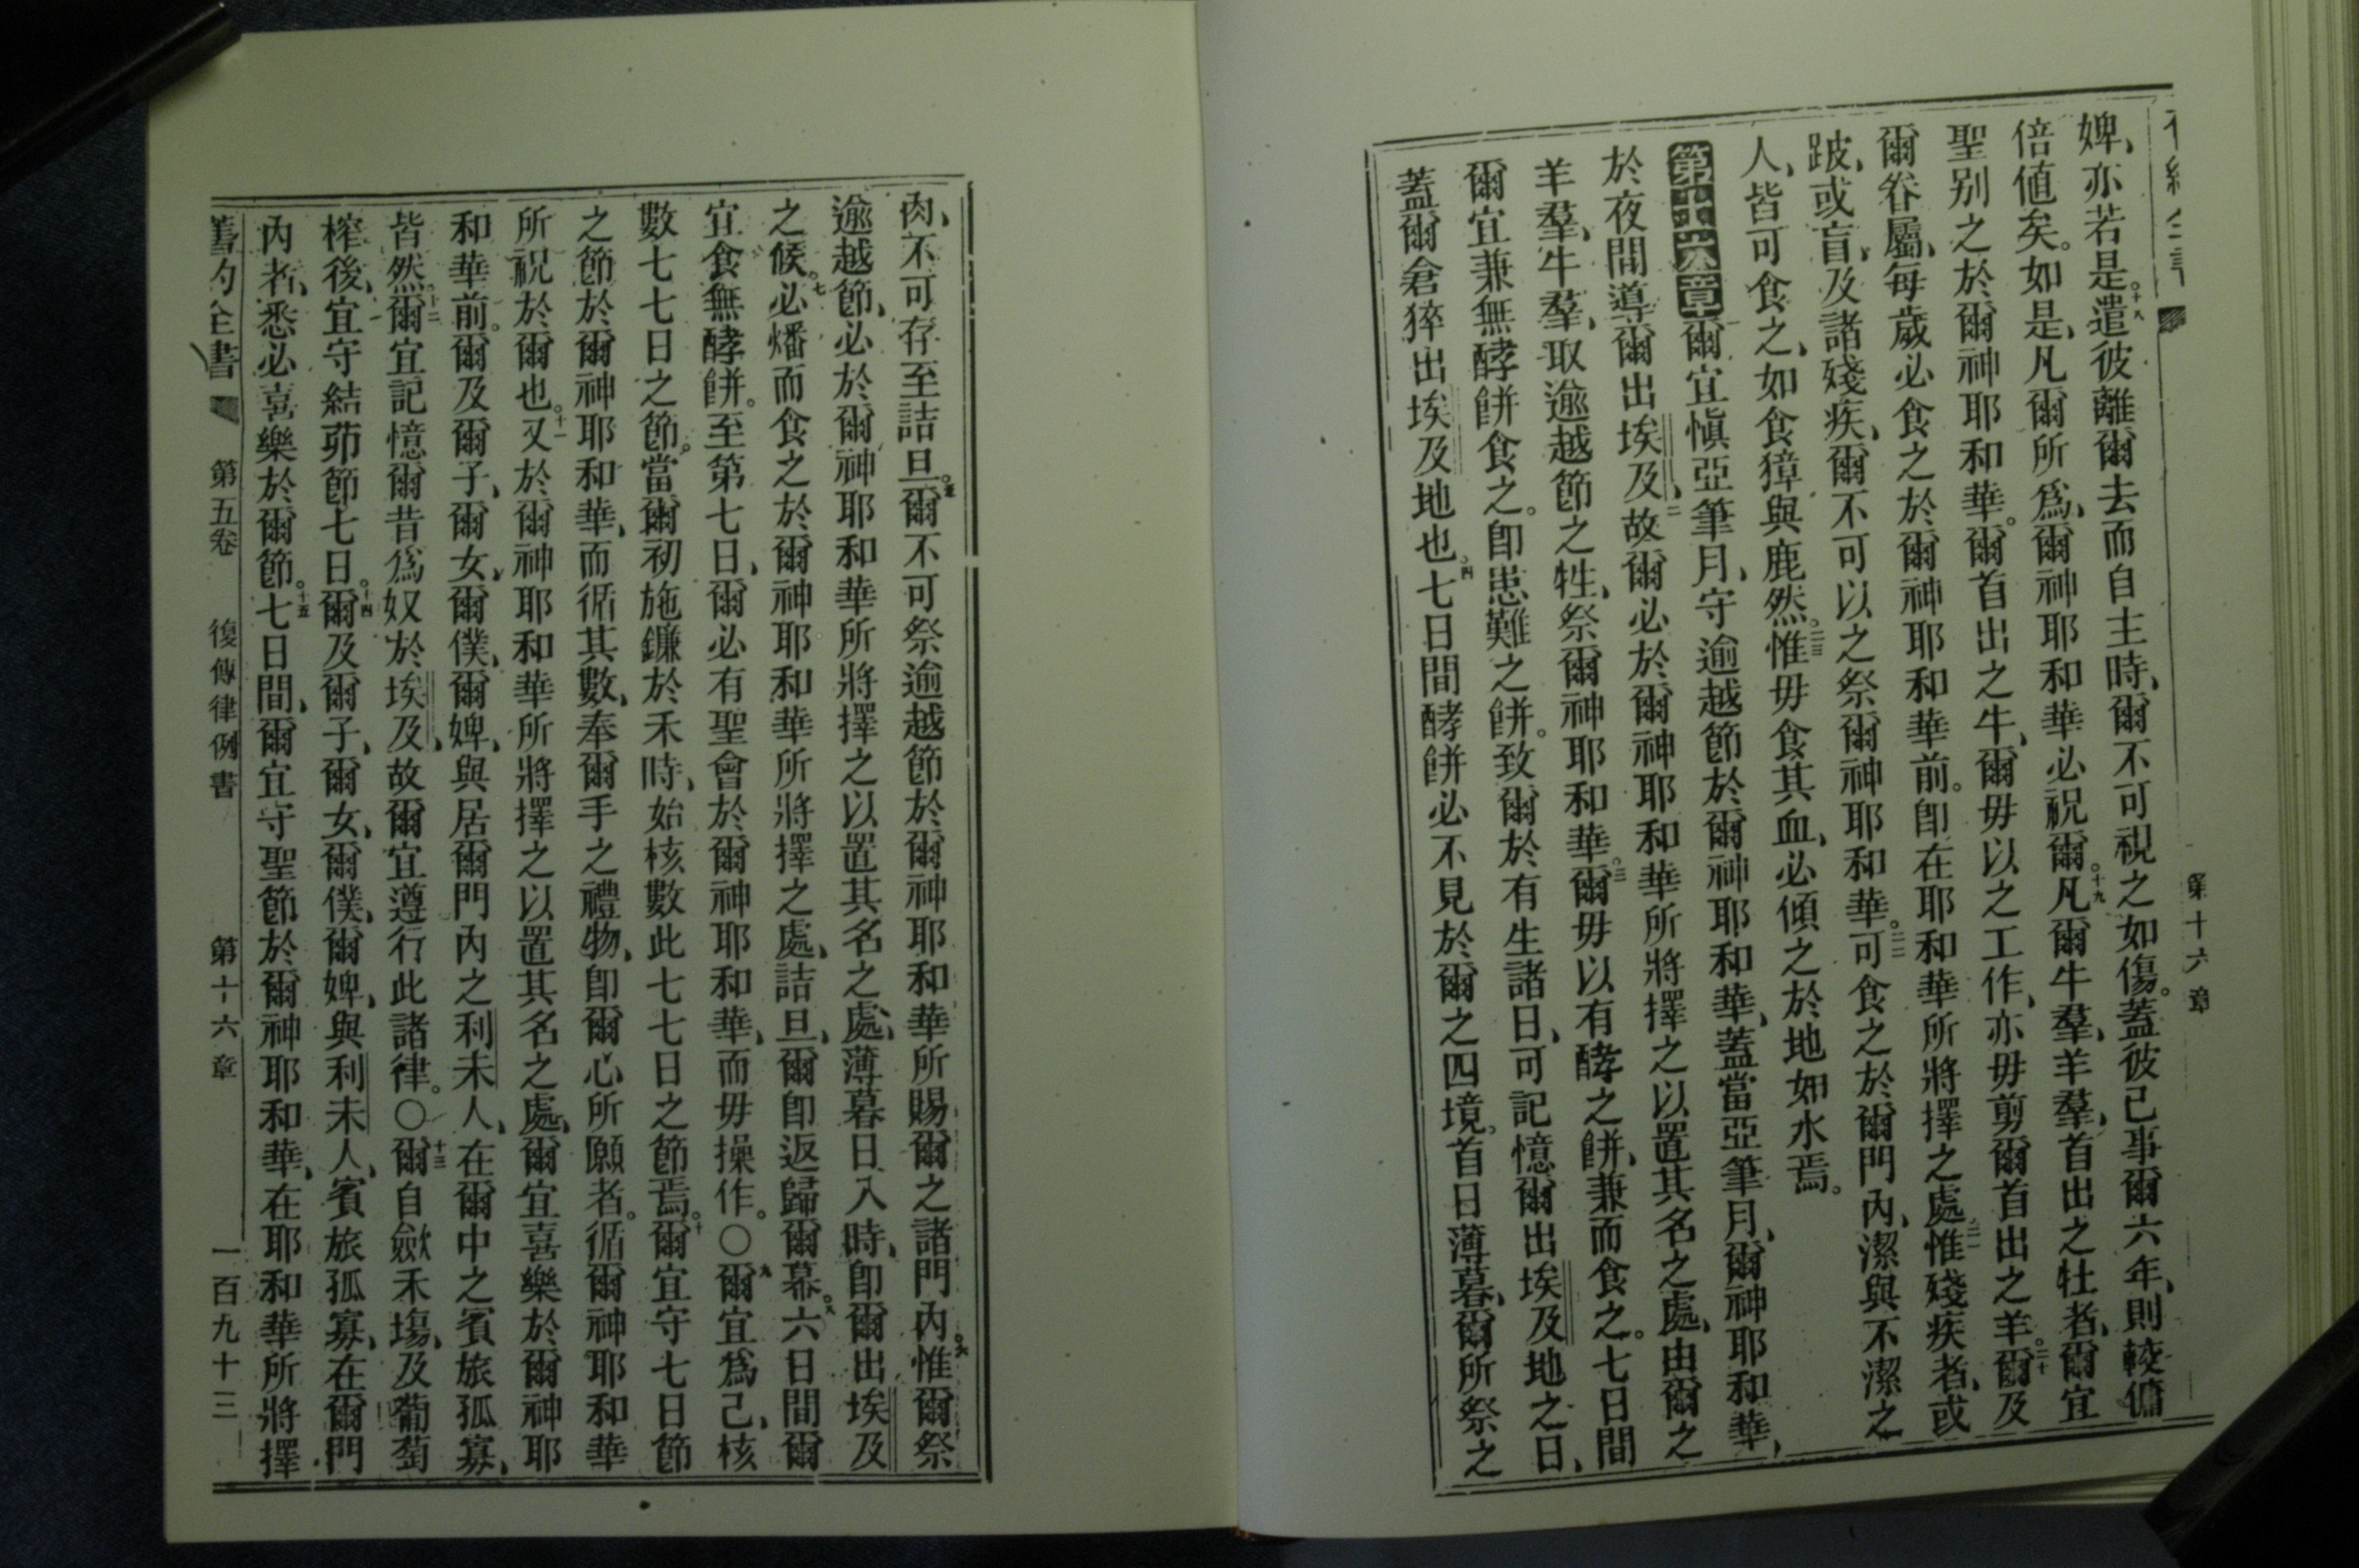 第十六章
婢、亦若是。十八遣彼離爾去而自主時、爾不可視之如傷。蓋彼已事爾六年、則較傭
倍值矣。如是、凡爾所爲、爾神耶和華必祝爾。十九凡爾牛羣、羊羣、首出之牡者、爾宜
聖别之於爾神耶和華。爾首出之牛、爾毋以之工作、亦毋剪爾首出之羊。二十爾及
爾眷屬、每歲必食之於爾神耶和華前。卽在耶和華所將擇之處。二一惟殘疾者、或
跛、或盲、及諸殘疾、爾不可以之祭爾神耶和華。二二可食之於爾門內、潔與不潔之
人、皆可食之、如食獐與鹿然。二三惟毋食其血、必傾之於地如水焉。
第十六章爾宜愼亞筆月、守逾越節於爾神耶和華、蓋當亞筆月、爾神耶和華、
於夜間導爾出埃及、二故爾必於爾神耶和華所將擇之以置其名之處、由爾之
羊羣、牛羣、取逾越節之牲、祭爾神耶和華。三爾毋以有酵之餅、兼而食之。七日間
爾宜兼無酵餅食之。卽患難之餅。致爾於有生諸日、可記憶爾出埃及地之日、
蓋爾倉猝出埃及地也。四七日間酵餅必不見於爾之四境。首日薄暮、爾所祭之
肉、不可存至詰旦。五爾不可祭逾越節於爾神耶和華所賜爾之諸門內。六惟爾祭
逾越節、必於爾神耶和華所將擇之以置其名之處、薄暮日入時、卽爾出埃及
之候。七必燔而食之於爾神耶和華所將擇之處、詰旦、爾卽返歸爾幕。八六日間爾
宜食無酵餅。至第七日、爾必有聖會於爾神耶和華、而毋操作。〇九爾宜爲己、核
數七七日之節。當爾初施鐮於禾時、始核數此七七日之節焉。十爾宜守七日節
之節於爾神耶和華、而循其數、奉爾手之禮物、卽爾心所願者。循爾神耶和華
所祝於爾也。十一又於爾神耶和華所將擇之以置其名之處、爾宜喜樂於爾神耶
和華前。爾及爾子、爾女、爾僕、爾婢、與居爾門內之利未人、在爾中之賓旅孤寡、
皆然。十二爾宜記憶爾昔爲奴於埃及、故爾宜遵行此諸律。〇十三爾自歛禾塲、及葡萄
榨後、宜守結茆節七日。十四爾及爾子、爾女、爾僕、爾婢、與利未人、賓旅孤寡、在爾門
內者、悉必喜樂於爾節。十五七日間、爾宜守聖節於爾神耶和華、在耶和華所將擇
舊約全書 第五卷 復傳律例書 第十六章 一百九十三